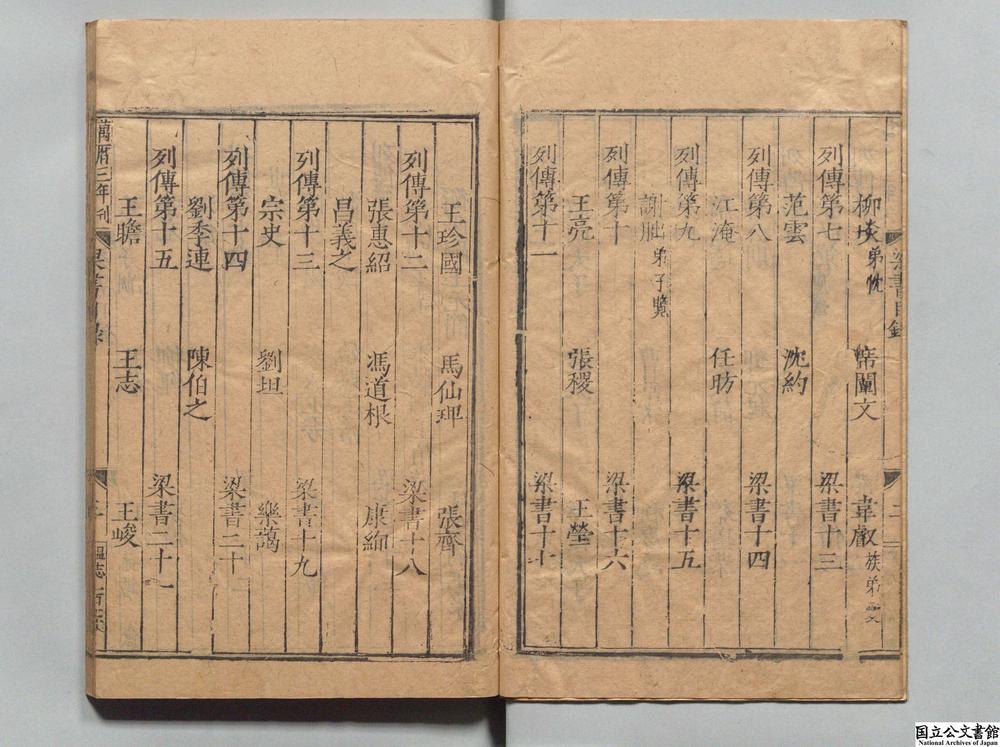 梁書目錄 二
柳惔 弟忱 席闡文 韋叡 族弟
列傳第七 梁書十三
范雲 沈約
列傳第八 梁書十四
江淹 任昉
列傳第九 梁書十五
謝朏 弟子覽
列傳第十 梁書十六
王亮 張稷 王瑩
列傳第十一 梁書十七
王珍國 馬仙琕 張齊
列傳第十二 梁書十八
張惠紹 馮道根 康絢
昌義之
列傳第十三 梁書十九
宗史 劉坦 樂藹
列傳第十四 梁書二十
劉季連 陳伯之
列傳第十五 梁書二十一
王瞻 王志 王峻
萬曆三年刊 梁書
国立公文書館
National Archives of Japan